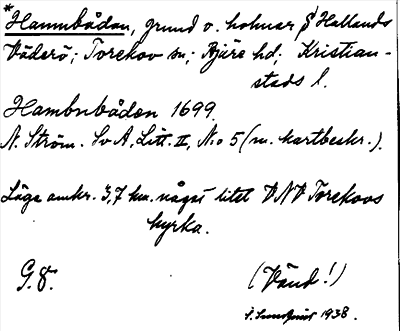 *Hamnbådan, grund o. holmar å Hallands
Väderö; Torekov sn; Bjäre hd; Kristian-
stads l.
Hambnbåden 1699.
N. Ström. Sv A, Litt. II, No 5 (m. kartbeskr.).
Läge omkr. 3,7 km. något litet VNV Torekovs
kyrka.
G.8.
(Vänd!)
1938.